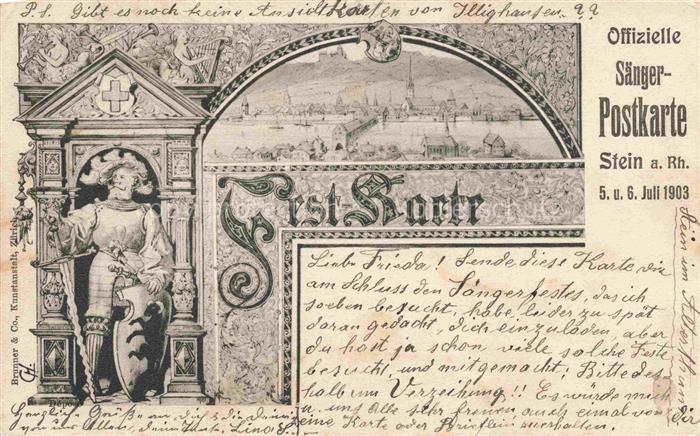 P.S. Gibt es noch keine Ansichtkarten von Illighausen. ??
Offizielle
Sänger-
Postkarte
Stein a. Rh.
5. u. 6. Juli 1903
Fest Karte
Brunner & Co., Kunstanstalt, Zürich
Depon
Liebe Frieda! Sende diese Karte dir
am Schluss den Sängerfestes, das ich
soeben besucht, habe leider zu spät
daran gedacht, dich einzuladen, aber
du hast ja schon viele solche Feste
besucht, und mitgemacht. Bitte des
halb um Verzeihung!! Es würde mich
u. uns Alle sehr freuen, auch einmal von dir
eine Karte oder Brieflein zu erhalten.
Herzliche Grüße an dich & die deinen
von uns Allen, deine
Stein am